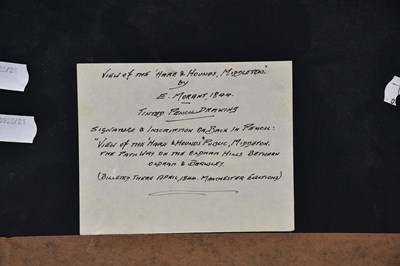 VIEW OF THE 'HARE & HOUNDS, MIDDLETON'.
BY
E. MORANT, 1844.
TINTED PENCIL DRAWING
SIGNATURE & INSCRIPTION ON BACK IN PENCIL:
"VIEW OF THE 'HARE & HOUNDS' PUBLIC, MIDDLETON.
THE PATH WAY ON THE OLDHAM HILLS BETWEEN
OLDHAM & BARNSLEY.
(BILLETED THERE APRIL, 1844. MANCHESTER ELECTIONS)